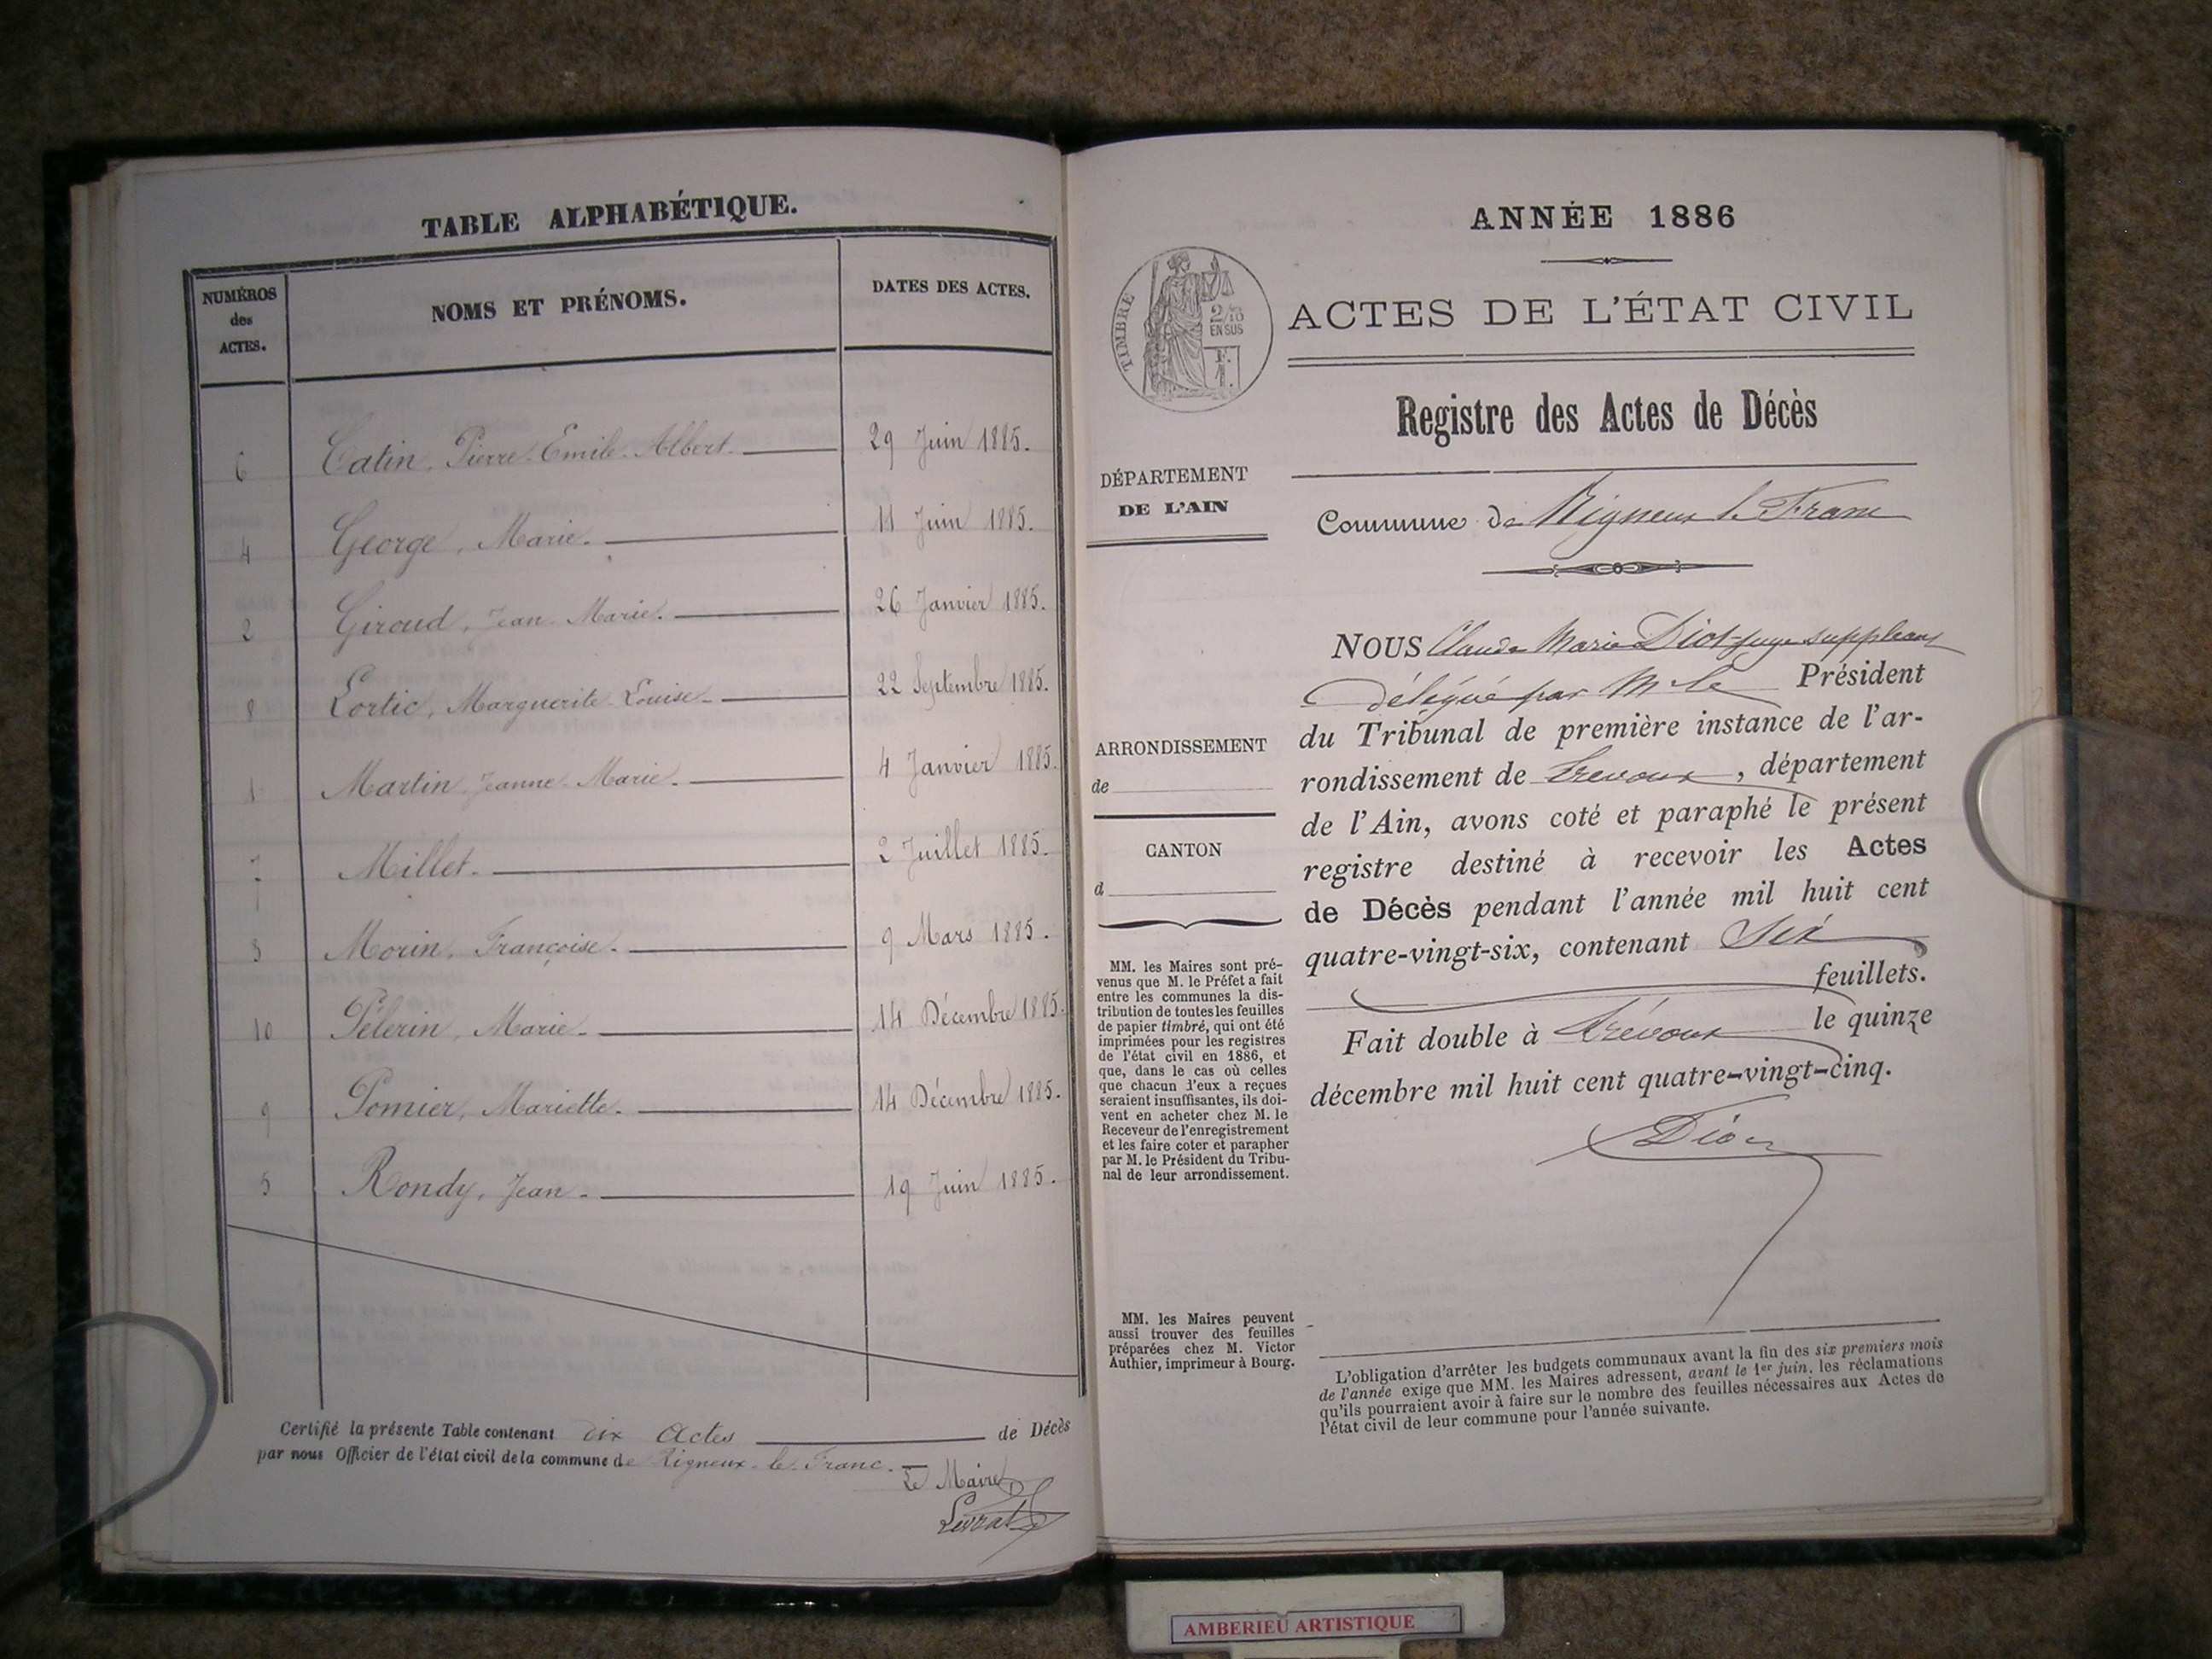 TABLE ALPHABÉTIQUE.
NUMÉROS des ACTES.
NOMS ET PRÉNOMS.
DATES DES ACTES.
6 Catin, Pierre Emile Albert. 29 Juin 1885.
4 George, Marie. 11 Juin 1885.
2 Giroud, Jean Marie. 26 Janvier 1885.
8 Lortic, Marguerite Louise. 22 Septembre 1885.
1 Martin Jeanne Marie. 4 Janvier 1885.
7 Millet. 2 Juillet 1885.
3 Morin, Françoise. 9 Mars 1885.
10 Pélerin, Marie. 14 Décembre 1885.
9 Pomier, Mariette. 14 Décembre 1885.
5 Rondy, Jean. 19 Juin 1885.
Certifié la présente Table contenant dix Actes de Décès
par nous Officier de l'état civil de la commune de Rigneux-le-Franc.
Le Maire
Livrat
ANNÉE 1886
TIMBRE
2/10
EN SUS
F.
1.
ACTES DE L'ÉTAT CIVIL
Registre des Actes de Décès
DÉPARTEMENT
DE L'AIN
Commune de Rigneux le Franc
ARRONDISSEMENT
de
CANTON
d
MM. les Maires sont pré-
venus que M. le Préfet a fait
entre les communes la dis-
tribution de toutes les feuilles
de papier timbré, qui ont été
imprimées pour les registres
de l'état civil en 1886, et
que, dans le cas où celles
que chacun d'eux a reçues
seraient insuffisantes, ils doi-
vent en acheter chez M. le
Receveur de l'enregistrement
et les faire coter et parapher
par M. le Président du Tribu-
nal de leur arrondissement.
MM. les Maires peuvent
aussi trouver des feuilles
préparées chez M. Victor
Authier, imprimeur à Bourg.
NOUS Claude Marie Diot juge suppléant
délégué par Mr le Président
du Tribunal de première instance de l'ar-
rondissement de Trevoux, département
de l'Ain, avons coté et paraphé le présent
registre destiné à recevoir les Actes
de Décès pendant l'année mil huit cent
quatre-vingt-six, contenant Six
feuillets.
Fait double à Trévoux le quinze
décembre mil huit cent quatre-vingt-cinq.
Diot
L'obligation d'arrêter les budgets communaux avant la fin des six premiers mois
de l'année exige que MM. les Maires adressent, avant le 1er juin, les réclamations
qu'ils pourraient avoir à faire sur le nombre des feuilles nécessaires aux Actes de
l'état civil de leur commune pour l'année suivante.
AMBERIEU ARTISTIQUE